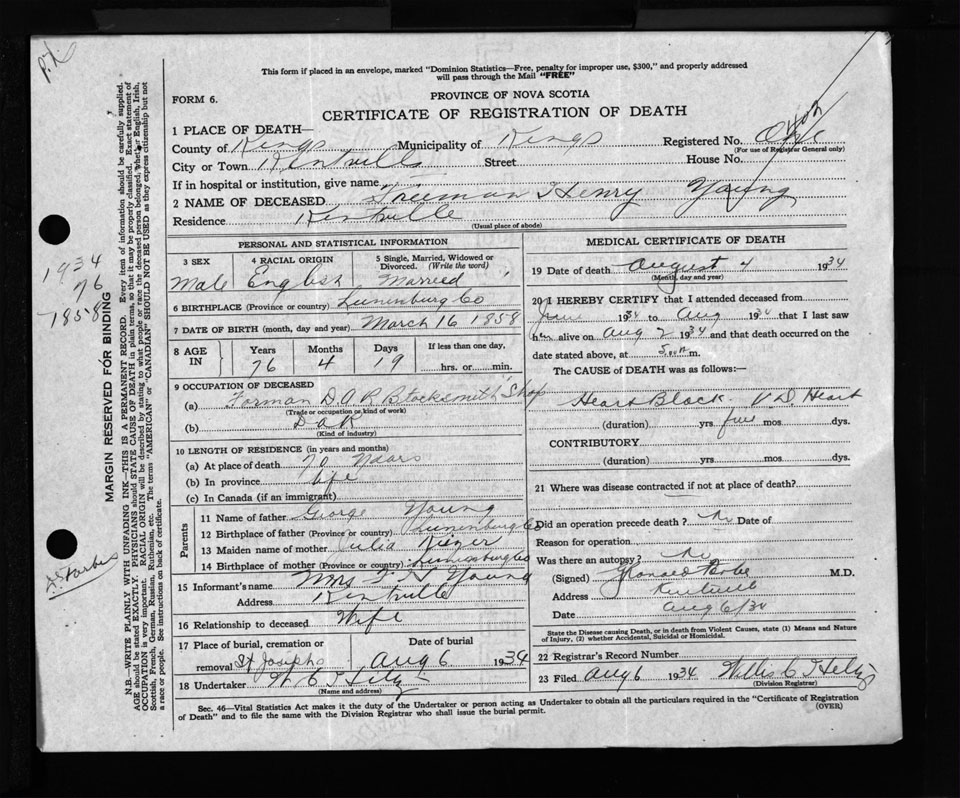 P.X
This form if placed in an envelope, marked "Dominion Statistics—Free, penalty for improper use, $300," and properly addressed
will pass through the Mail "FREE"
FORM 6.
PROVINCE OF NOVA SCOTIA
CERTIFICATE OF REGISTRATION OF DEATH
1 PLACE OF DEATH—
County of Kings Municipality of Kings Registered No.
(For use of Registrar General only)
City or Town Kentville Street House No.
If in hospital or institution, give name
2 NAME OF DECEASED Truman Henry Young
Residence Kentville
(Usual place of abode)
PERSONAL AND STATISTICAL INFORMATION
3 SEX 4 RACIAL ORIGIN 5 Single, Married, Widowed or
Divorced. (Write the word)
Male English Married
6 BIRTHPLACE (Province or country) Lunenburg Co
7 DATE OF BIRTH (month, day and year) March 16 1858
8 AGE IN Years Months Days If less than one day,
76 4 19 hrs. or min.
9 OCCUPATION OF DECEASED
(a) Forman D.A.R Blacksmith Shop
(Trade or occupation or kind of work)
(b) D A R
(Kind of industry)
10 LENGTH OF RESIDENCE (in years and months)
(a) At place of death
(b) In province life
(c) In Canada (if an immigrant)
Parents
11 Name of father George Young
12 Birthplace of father (Province or country) Lunenburg Co
13 Maiden name of mother Julia
14 Birthplace of mother (Province or country) Lunenburg Co
15 Informant's name Mrs Young
Address Kentville
16 Relationship to deceased Wife
17 Place of burial, cremation or Date of burial
removal St Josephs Aug 6 1934
18 Undertaker W C
(Name and address)
MEDICAL CERTIFICATE OF DEATH
19 Date of death August 4 1934
(Month, day and year)
20 I HEREBY CERTIFY that I attended deceased from
June 1934 to Aug 1934 that I last saw
him alive on Aug 2 1934 and that death occurred on the
date stated above, at m.
The CAUSE of DEATH was as follows:—
Heart Block Heart
(duration) yrs mos. dys.
CONTRIBUTORY
(duration) yrs mos. dys.
21 Where was disease contracted if not at place of death?
Did an operation precede death? No Date of
Reason for operation
Was there an autopsy? No
(Signed) M.D.
Address Kentville
Date Aug 6/34
State the Disease causing Death, or in death from Violent Causes, state (1) Means and Nature
of Injury, (2) whether Accidental, Suicidal or Homicidal.
22 Registrar's Record Number
23 Filed Aug 6 1934 Willis C
(Division Registrar)
Sec. 46—Vital Statistics Act makes it the duty of the Undertaker or person acting as Undertaker to obtain all the particulars required in the "Certificate of Registration
of Death" and to file the same with the Division Registrar who shall issue the burial permit. (OVER)
1934
76
1858
MARGIN RESERVED FOR BINDING
N.B.—WRITE PLAINLY WITH UNFADING INK—THIS IS A PERMANENT RECORD. Every item of information should be carefully supplied.
AGE should be stated EXACTLY. PHYSICIANS should state CAUSE OF DEATH in plain terms, so that it may be properly classified. Exact statement of
OCCUPATION is very important. RACIAL ORIGIN will be described by stating to what people or race the deceased person belonged, whether English, Irish,
Scottish, French, German, Russian, Ruthenian, etc. The terms "AMERICAN" or "CANADIAN" SHOULD NOT BE USED as they express citizenship but not
a race or people. See instructions on back of certificate.